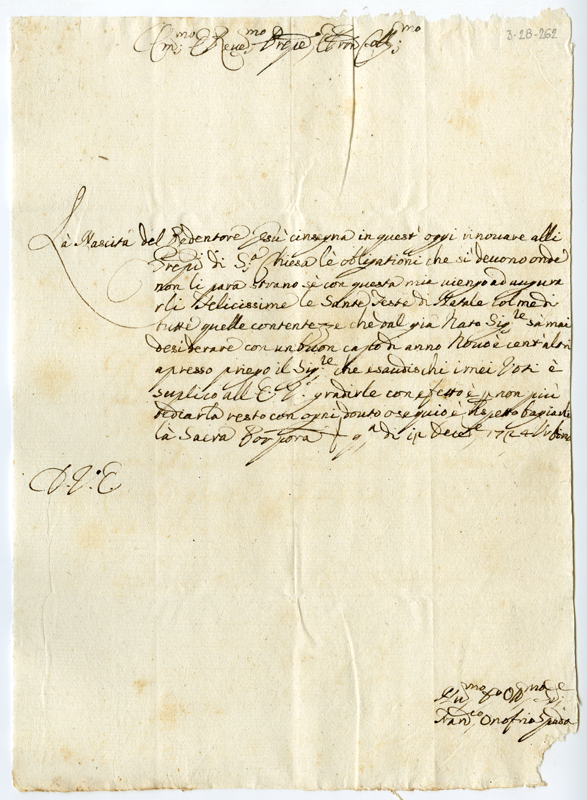 3-28-262
Em.mo E Reve.mo Prēpē Pron Coll.mo
Là Nascità del Redentore Giesù c'insegna in quest' oggi rinovare alli
Prēpi di S.a Chiesa lè obligationi che si deuono onde
non li sarà strano sè con questa mia uiengo ad augura
rli felicissime le Sante feste di Natale colme di
tutte quelle contentezze che dal già Nato Sig.re sà mai
desiderare con un buon capo di anno Nouo è cent altri
apresso priego il Sig.re che esaudischi i miei Voti è
suplico all E. V. gradirle con effetto è non più
tediarla resto con ogni douto ossequio è rispetto bagiarle
là Sacra Porpora 1724 Urbino
D. V. E
Hu.mo Ob.mo Se
Fran.co Onofrio Spada